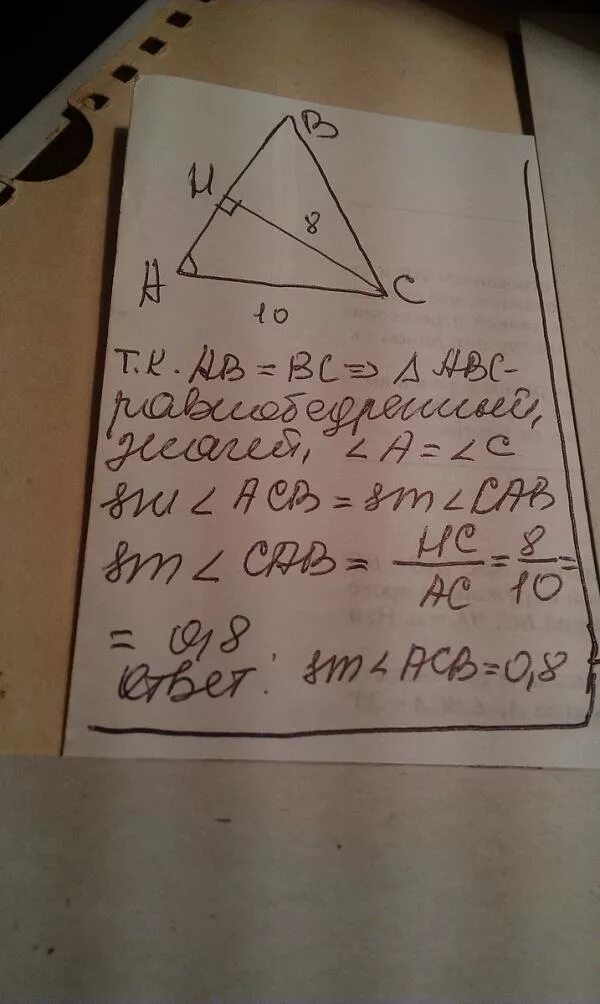 B
H
8
A
C
10
т.к. AB = BC ⇒ Δ ABC-
равнобедренный,
значит, ∠A = ∠C
sin ∠ ACB = sin ∠ CAB
sin ∠ CAB = HC/AC = 8/10 =
= 0,8
Ответ: sin ∠ ACB = 0,8